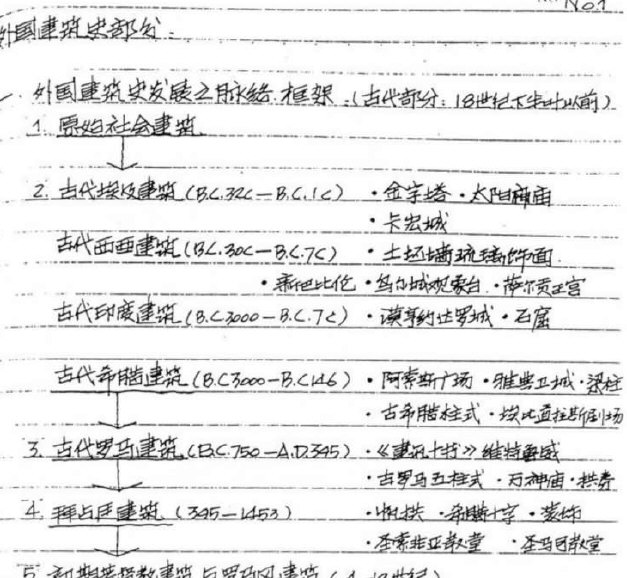 No1
外国建筑史部分.
外国建筑史发展之脉络.框架:(古代部分:18世纪下半叶以前)
1. 原始社会建筑
2. 古代埃及建筑(B.C.32C—B.C.1C) ·金字塔 ·太阳神庙
·卡宏城
古代西亚建筑(B.C.30C—B.C.7C) ·土坯墙琉璃饰面
·新巴比伦 ·乌尔城观象台 ·萨尔贡王宫
古代印度建筑(B.C.3000—B.C.7C) ·莫亨约达罗城 ·石窟
古代希腊建筑(B.C3000—B.C146) ·阿索斯广场 ·雅典卫城 ·梁柱
·古希腊柱式 ·埃比道拉斯剧场
3. 古代罗马建筑(B.C.750—A.D.395) ·《建筑十书》维特鲁威
·古罗马五柱式 ·万神庙 ·拱券
4. 拜占庭建筑(395—1453) ·帆拱 ·希腊十字 ·装饰
·圣索非亚教堂 ·圣马可教堂
5. 初期基督教建筑与罗马风建筑(4-12世纪)